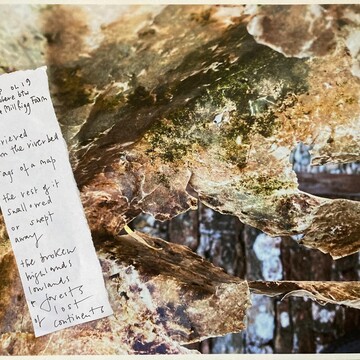 OL 19
Mill Rigg Farm
rieved
m the riverbed
age of a map
the rest of it
swallowed
or swept
away
the broken
highlands
lowlands
+ forests
lost
of continents